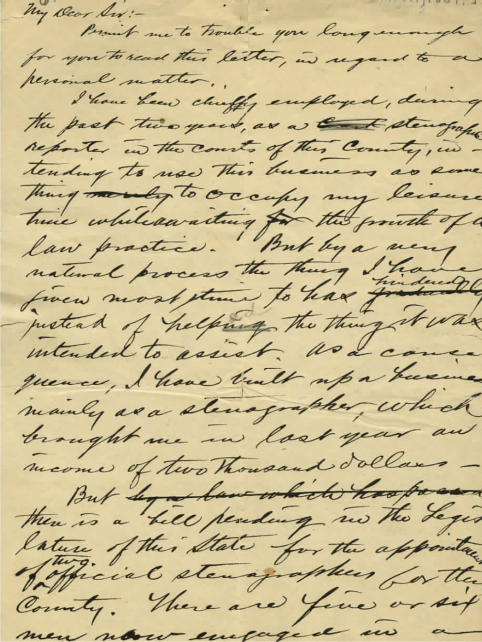 My Dear Sir:-
Permit me to trouble you long enough
for you to read this letter, in regard to a
personal matter.
I have been chiefly employed, during
the past two years, as a Court stenographic
reporter in the courts of this County, in-
tending to use this business as some
thing merely to occupy my leisure
time while awaiting for the growth of a
law practice. But by a very
natural process the thing I have
hindered
given most time to has gradually
instead of helping ed the thing it was
intended to assist. As a conse
quence, I have built up a business
mainly as a stenographer, which
brought me in last year an
income of two thousand dollars -
But by a law which has passed
there is a bill pending in the Legis
lature of this State for the appointment
two
of official stenographers for this
County. There are five or six
men now engaged in a